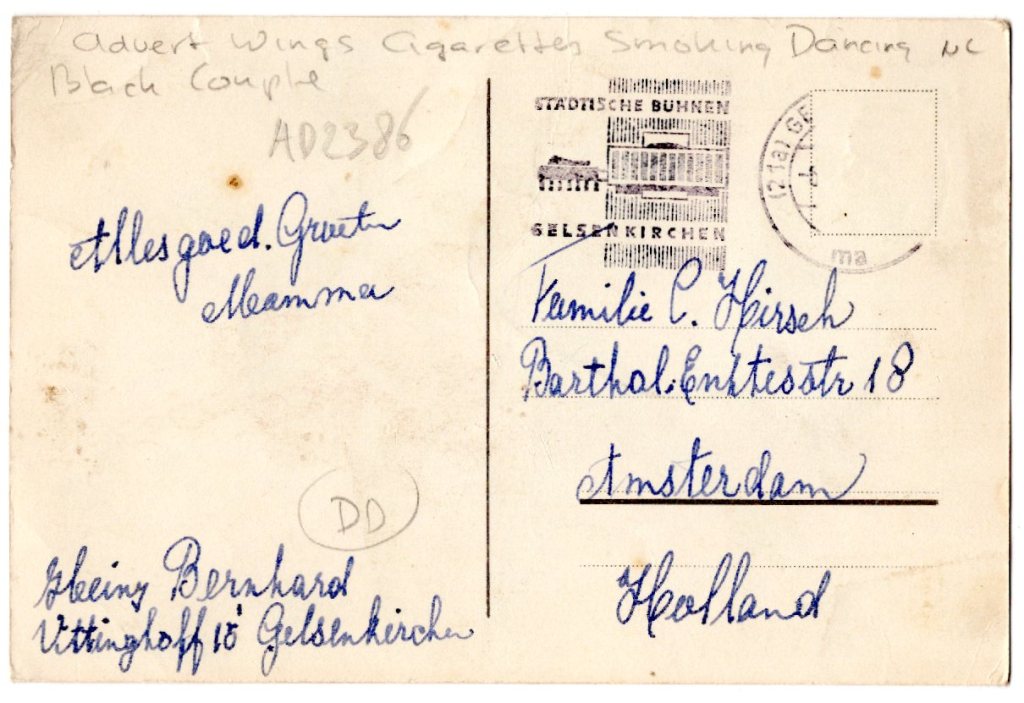 Advert Wings Cigarettes Smoking Dancing NC
Black Couple
AD2386
Alles goed. Groeten
Mamma
DD
Heinz Bernhard
Vittinghoff 18 Gelsenkirchen
STÄDTISCHE BÜHNEN
GELSENKIRCHEN
(21a) GE
ma
Familie C. Hirsch
Barthol. Enktesstr 18
Amsterdam
Holland